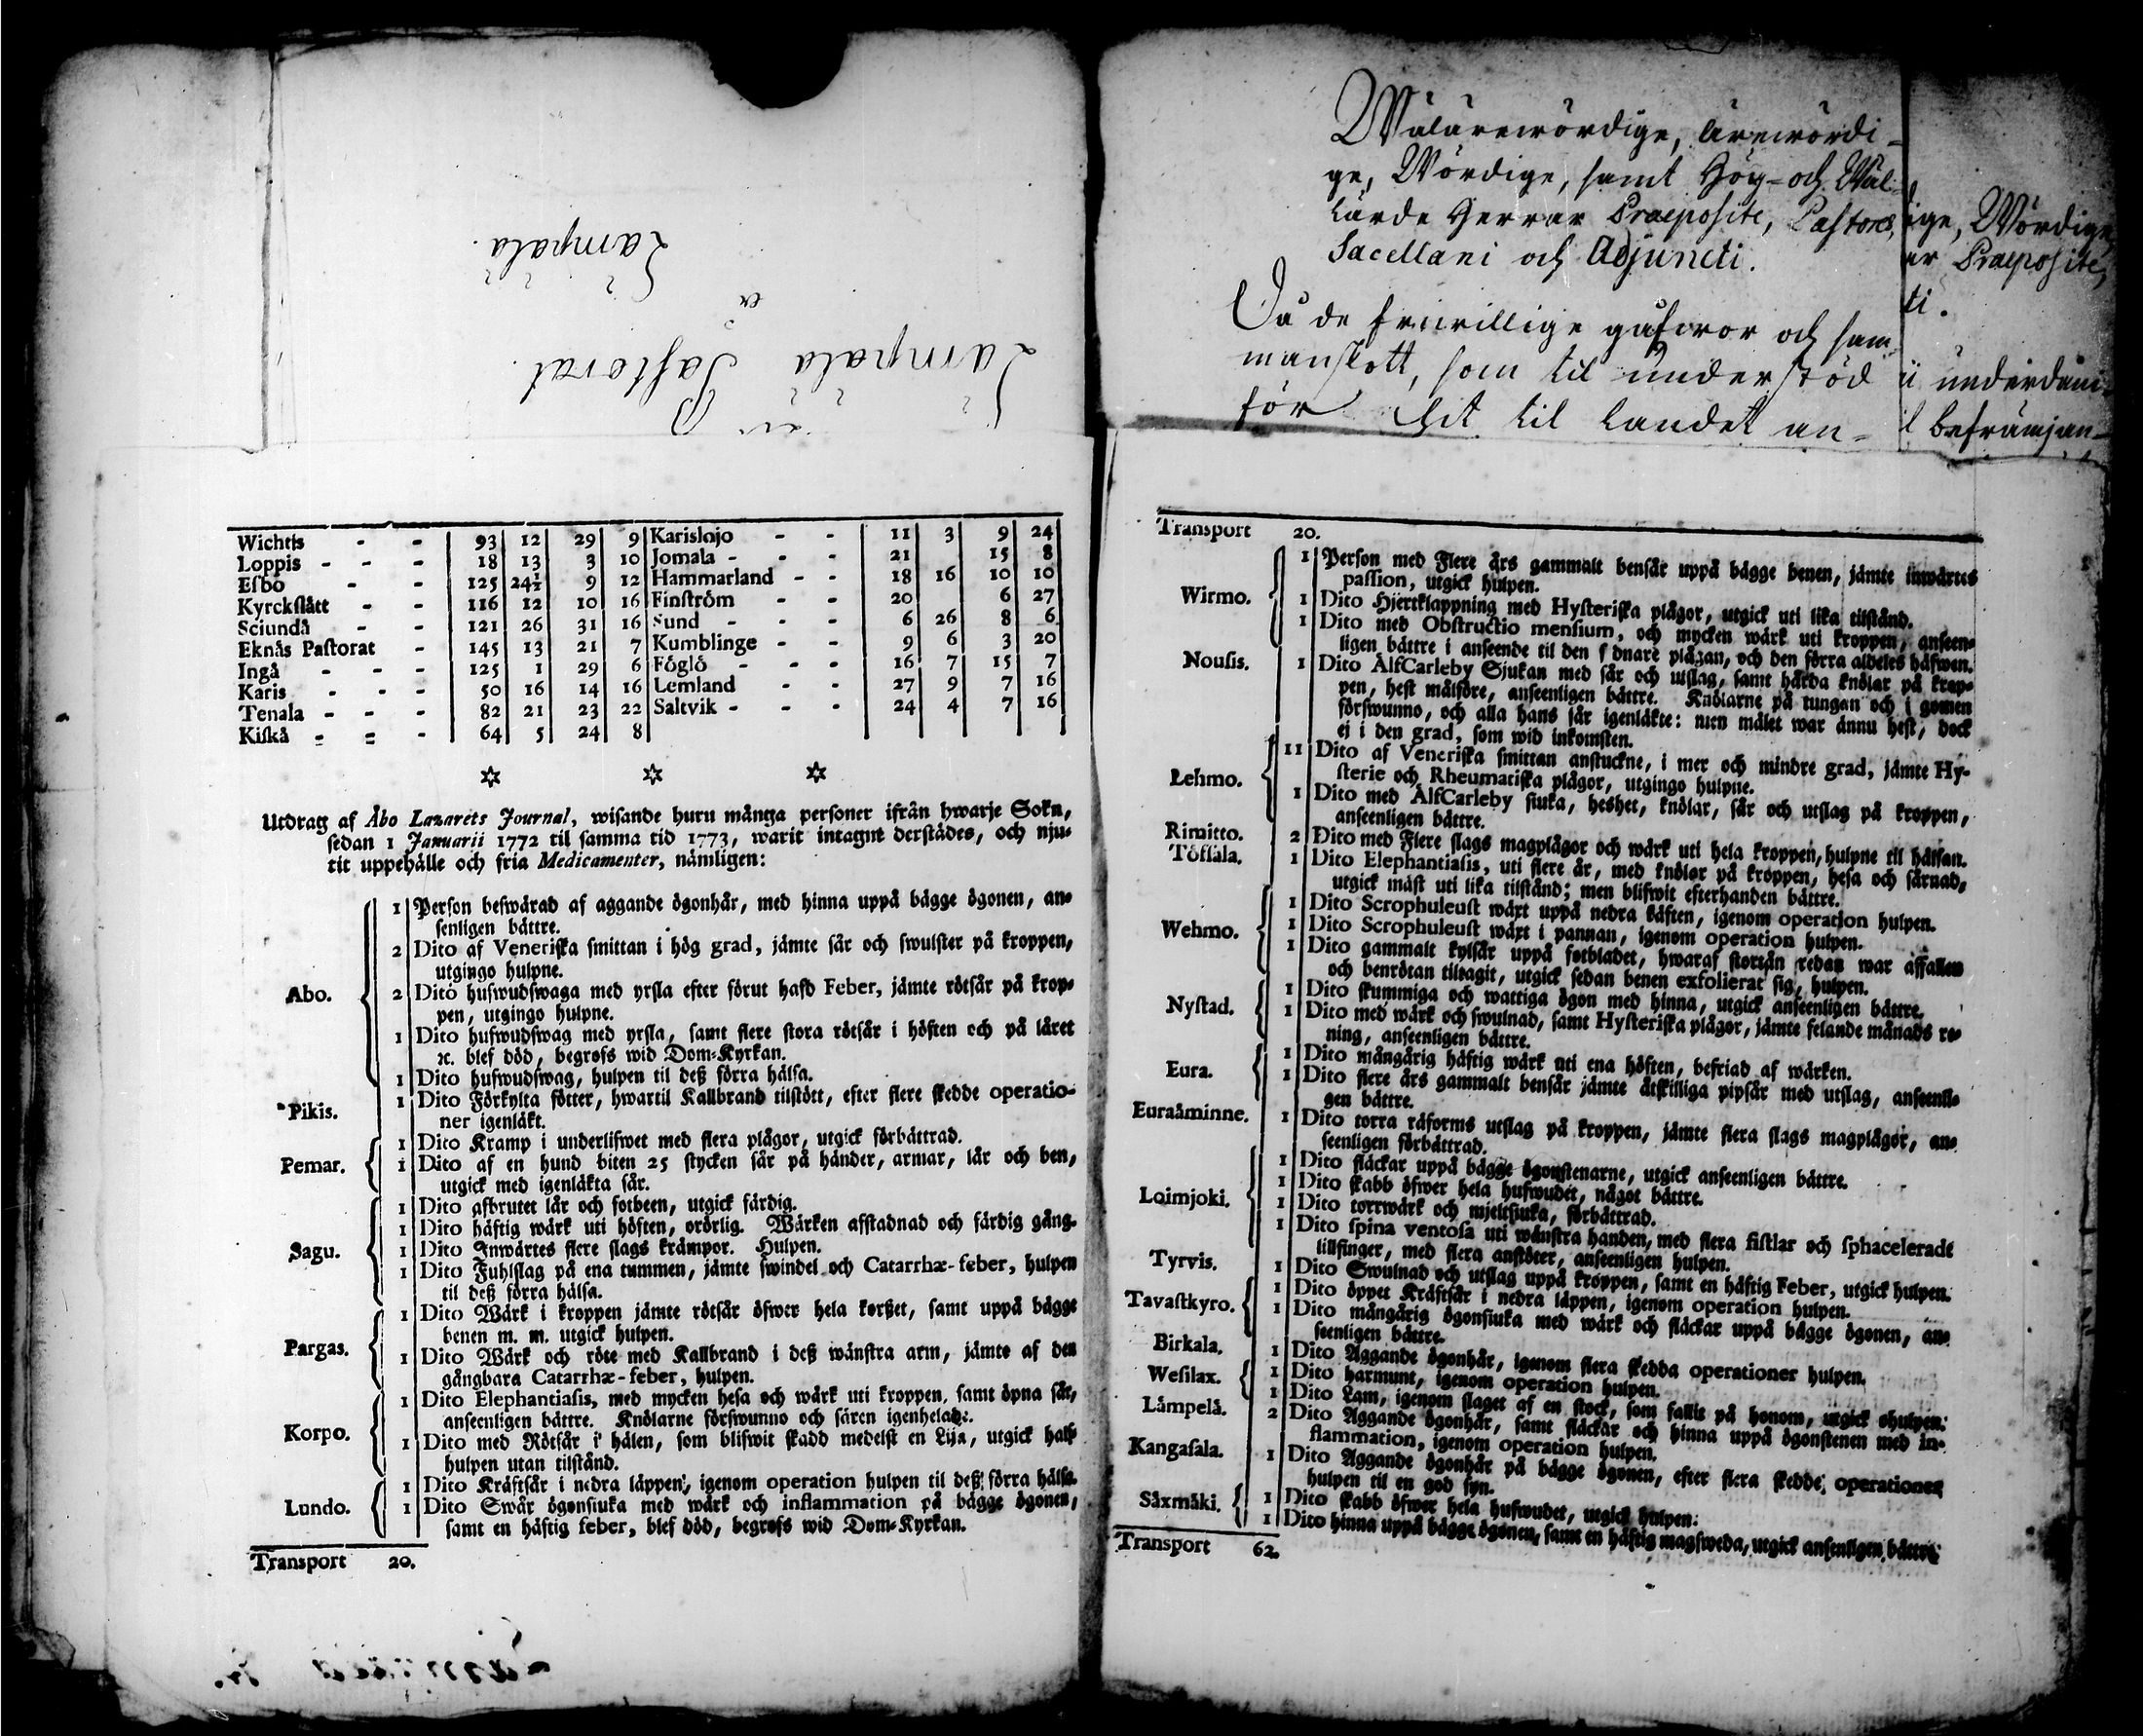 Lampälä
Pastorat.
Lampälä.
Wichtis - - 93 12 29 9 Karislojo - - 11 3 9 24
Loppis - - - 18 13 3 10 Jomala - - - 21 15 8
Esbo - - 125 24½ 9 12 Hammarland - - 18 16 10 10
Kyrckslätt - - 116 12 10 16 Finström - - 20 6 27
Sciundå - - 121 26 31 16 Sund - - - 6 26 8 6
Eknäs Pastorat - 145 13 21 7 Kumblinge - - 9 6 3 20
Ingå - - - 125 1 29 6 Föglö - - - 16 7 15 7
Karis - - - 50 16 14 16 Lemland - - 27 9 7 16
Tenala - - - 82 21 23 22 Saltvik - - - 24 4 7 16
Kiskå - - - 64 5 24 8
Utdrag af Åbo Lazarets Journal, wisande huru många personer ifrån hwarje Sokn,
sedan 1 Januarii 1772 til samma tid 1773, warit intagne derstädes, och nju-
tit uppehälle och fria Medicamenter, nämligen:
Abo. 1 Person beswärad af aggande ögonhår, med hinna uppå bägge ögonen, an-
senligen bättre.
2 Dito af Veneriska smittan i hög grad, jämte sår och swulster på kroppen,
utgingo hulpne.
2 Dito hufwudswaga med yrsla efter förut hafd Feber, jämte rötsår på krop-
pen, utgingo hulpne.
1 Dito hufwudswag med yrsla, samt flere stora rötsår i höften och på låret
ꝛc. blef död, begrofs wid Dom-Kyrkan.
1 Dito hufwudswag, hulpen til deß förra hälsa.
Pikis. 1 Dito Förkylta fötter, hwartil Kallbrand tilstött, efter flere skedde operatio-
ner igenläkt.
Pemar. 1 Dito Kramp i underlifwet med flera plågor, utgick förbättrad.
1 Dito af en hund biten 25 stycken sår på händer, armar, lår och ben,
utgick med igenläkta sår.
Sagu. 1 Dito afbrutet lår och fotbeen, utgick färdig.
1 Dito häftig wärk uti höften, orörlig. Wärken afstadnad och färdig gång.
1 Dito Inwärtes flere slags krämpor. Hulpen.
1 Dito Fuhlslag på ena tummen, jämte swindel och Catarrhæ-feber, hulpen
til deß förra hälsa.
Pargas. 1 Dito Wärk i kroppen jämte rötsår öfwer hela korßet, samt uppå bägge
benen m. m. utgick hulpen.
1 Dito Wärk och röte med Kallbrand i deß wänstra arm, jämte af den
gångbara Catarrhæ-feber, hulpen.
Korpo. 1 Dito Elephantiasis, med mycken hesa och wärk uti kroppen, samt öpna sår,
anseenligen bättre. Knölarne förswunno och såren igenhelade.
1 Dito med Rötsår i hälen, som blifwit skadd medelst en Lija, utgick halft
hulpen utan tilstånd.
Lundo. 1 Dito Kräftsår i nedra läppen, igenom operation hulpen til deß förra hälsa.
1 Dito Swår ögonsiuka med wärk och inflammation på bägge ögonen,
samt en häftig feber, blef död, begrofs wid Dom-Kyrkan.
Transport 20.
Wälärewördige, ärewördi-
ge, Wördige, samt Hög- och Wäl-
lärde Herrar Praeposite, Pastores,
Sacellani och Adjuncti.
Då de friwillige gåfwor och sam
manskott, som til understöd
för hit til landet an-
ige, Wördige,
er Praeposite,
ti.
underdåni-
l befrämjan-
Transport 20.
Wirmo. 1 Person med Flere års gammalt bensår uppå bägge benen, jämte inwärtes
passion, utgick hulpen.
1 Dito Hjertklappning med Hysteriska plågor, utgick uti lika tilstånd.
1 Dito med Obstructio mensium, och mycken wärk uti kroppen, anseen-
ligen bättre i anseende til den sednare plågan, och den förra aldeles häfwen.
Nousis. 1 Dito ÅlfCarleby Sjukan med sår och utslag, samt hårda knölar på krop-
pen, hest målföre, anseenligen bättre. Knölarne på tungan och i gomen
förswunno, och alla hans sår igenläkte: men målet war ännu hest, dock
ej i den grad, som wid inkomsten.
Lehmo. 11 Dito af Veneriska smittan anstuckne, i mer och mindre grad, jämte Hy-
sterie och Rheumatiska plågor, utgingo hulpne.
1 Dito med ÅlfCarleby siuka, heshet, knölar, sår och utslag på kroppen,
anseenligen bättre.
Rimitto. 2 Dito med Flere slags magplågor och wärk uti hela kroppen, hulpne til hälsan.
Töfsala. 1 Dito Elephantiasis, uti flere år, med knölar på kroppen, hesa och sårnad,
utgick mäst uti lika tilstånd; men blifwit efterhanden bättre.
Wehmo. 1 Dito Scrophuleust wäxt uppå nedra käften, igenom operation hulpen.
1 Dito Scrophuleust wäxt i pannan, igenom operation hulpen.
1 Dito gammalt kylsår uppå fotbladet, hwaraf stortån redan war affallen
och benrötan tiltagit, utgick sedan benen exfolierat sig, hulpen.
Nystad. 1 Dito skummiga och wattiga ögon med hinna, utgick anseenligen bättre.
1 Dito med wärk och swulnad, samt Hysteriska plågor, jämte felande månads re-
ning, anseenligen bättre.
Eura. 1 Dito mångårig häftig wärk uti ena höften, befriad af wärken.
1 Dito flere års gammalt bensår jämte åtskilliga pipsår med utslag, anseenli-
gen bättre.
Euraåminne. 1 Dito torra räforms utslag på kroppen, jämte flera slags magplågor, an-
seenligen förbättrad.
Loimjoki. 1 Dito fläckar uppå bägge ögonstenarne, utgick anseenligen bättre.
1 Dito skabb öfwer hela hufwudet, något bättre.
1 Dito torrwärk och mjeltsiuka, förbättrad.
1 Dito spina ventosa uti wänstra handen, med flera fistlar och sphacelerade
lillfinger, med flera anstöter, anseenligen hulpen.
Tyrvis. 1 Dito Swulnad och utslag uppå kroppen, samt en häftig Feber, utgick hulpen.
Tavastkyro. 1 Dito öppet Kräftsår i nedra läppen, igenom operation hulpen.
1 Dito mångårig ögonsiuka med wärk och fläckar uppå bägge ögonen, an-
seenligen bättre.
Birkala. 1 Dito Aggande ögonhår, igenom flera skedda operationer hulpen.
Wesilax. 1 Dito harmunt, igenom operation hulpen.
1 Dito Lam, igenom slaget af en stock, som fallit på honom, utgick ohulpen.
Lämpelä. 2 Dito Aggande ögonhår, samt fläckar och hinna uppå ögonstenen med in-
flammation, igenom operation hulpen.
Kangasala. 1 Dito Aggande ögonhår på bägge ögonen, efter flera skedde operationer
hulpen til en god syn.
Säxmäki. 1 Dito skabb öfwer hela hufwudet, utgick hulpen.
1 Dito hinna uppå bägge ögonen, samt en häftig magsweda, utgick ansenligen bättre.
Transport 62.